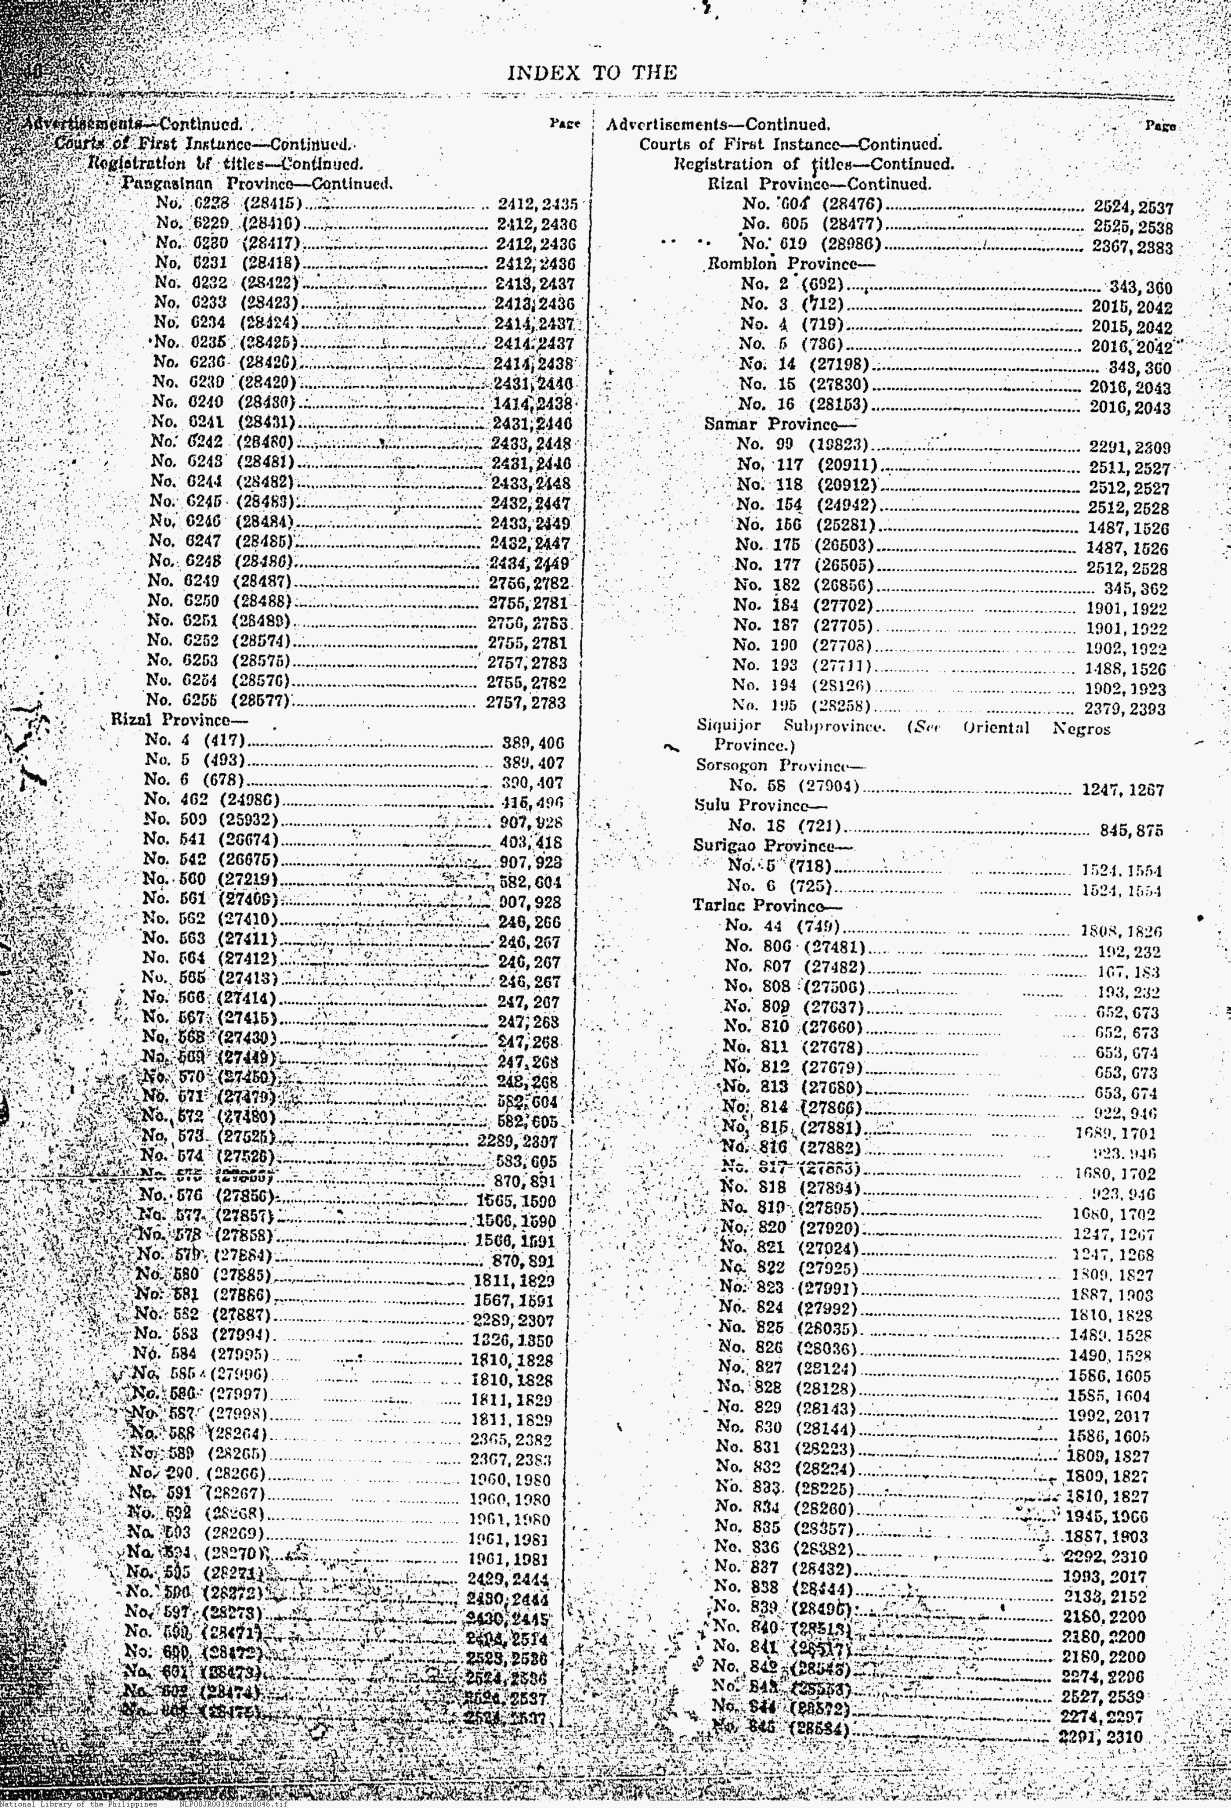 40
INDEX TO THE
Advertisements—Continued. Page
Courts of First Instance—Continued.
Registration of titles—Continued.
Pangasinan Province—Continued.
No. 6228 (28415) 2412, 2435
No. 6229 (28416) 2412, 2436
No. 6230 (28417) 2412, 2436
No. 6231 (28418) 2412, 2436
No. 6232 (28422) 2413, 2437
No. 6233 (28423) 2413, 2436
No. 6234 (28424) 2414, 2437
No. 6235 (28425) 2414, 2437
No. 6236 (28426) 2414, 2438
No. 6239 (28429) 2431, 2446
No. 6240 (28430) 1414, 2438
No. 6241 (28431) 2431, 2446
No. 6242 (28480) 2433, 2448
No. 6243 (28481) 2431, 2446
No. 6244 (28482) 2433, 2448
No. 6245 (28483) 2432, 2447
No. 6246 (28484) 2433, 2449
No. 6247 (28485) 2432, 2447
No. 6248 (28486) 2434, 2449
No. 6249 (28487) 2756, 2782
No. 6250 (28488) 2755, 2781
No. 6251 (28489) 2756, 2783
No. 6252 (28574) 2755, 2781
No. 6253 (28575) 2757, 2783
No. 6254 (28576) 2755, 2782
No. 6255 (28577) 2757, 2783
Rizal Province—
No. 4 (417) 389, 406
No. 5 (493) 389, 407
No. 6 (678) 390, 407
No. 462 (24986) 415, 496
No. 509 (25932) 907, 928
No. 541 (26674) 403, 418
No. 542 (26675) 907, 928
No. 560 (27219) 582, 604
No. 561 (27409) 907, 928
No. 562 (27410) 246, 266
No. 563 (27411) 246, 267
No. 564 (27412) 246, 267
No. 565 (27413) 246, 267
No. 566 (27414) 247, 267
No. 567 (27415) 247, 268
No. 568 (27430) 247, 268
No. 569 (27449) 247, 268
No. 570 (27450) 248, 268
No. 571 (27479) 582, 604
No. 572 (27480) 582, 605
No. 573 (27525) 2289, 2307
No. 574 (27526) 583, 605
No. 575 870, 891
No. 576 (27856) 1565, 1590
No. 577 (27857) 1566, 1590
No. 578 (27858) 1566, 1591
No. 579 (27884) 870, 891
No. 580 (27885) 1811, 1829
No. 581 (27886) 1567, 1591
No. 582 (27887) 2289, 2307
No. 583 (27994) 1326, 1350
No. 584 (27995) 1810, 1828
No. 585 (27996) 1810, 1828
No. 586 (27997) 1811, 1829
No. 587 (27998) 1811, 1829
No. 588 (28264) 2365, 2382
No. 589 (28265) 2367, 2383
No. 290 (28266) 1960, 1980
No. 591 (28267) 1960, 1980
No. 592 (28268) 1961, 1980
No. 593 (28269) 1961, 1981
No. 594 (28270) 1961, 1981
No. 595 (28271) 2429, 2444
No. 596 (28272) 2430, 2444
No. 597 (28273) 2430, 2445
No. 599 (28471) 2494, 2514
No. 600 (28472) 2523, 2536
No. 601 (28473) 2524, 2536
No. 602 (28474) 2524, 2537
No. 603 (28475) 2524, 2537
Advertisements—Continued. Page
Courts of First Instance—Continued.
Registration of titles—Continued.
Rizal Province—Continued.
No. 604 (28476) 2524, 2537
No. 605 (28477) 2525, 2538
No. 619 (28986) 2367, 2383
Romblon Province—
No. 2 (692) 343, 360
No. 3 (712) 2015, 2042
No. 4 (719) 2015, 2042
No. 5 (736) 2016, 2042
No. 14 (27198) 343, 360
No. 15 (27830) 2016, 2043
No. 16 (28153) 2016, 2043
Samar Province—
No. 99 (19823) 2291, 2309
No. 117 (20911) 2511, 2527
No. 118 (20912) 2512, 2527
No. 154 (24942) 2512, 2528
No. 156 (25281) 1487, 1526
No. 175 (26503) 1487, 1526
No. 177 (26505) 2512, 2528
No. 182 (26856) 345, 362
No. 184 (27702) 1901, 1922
No. 187 (27705) 1901, 1922
No. 190 (27708) 1902, 1922
No. 193 (27711) 1488, 1526
No. 194 (28126) 1902, 1923
No. 195 (28258) 2379, 2393
Siquijor Subprovince. (See Oriental Negros
Province.)
Sorsogon Province—
No. 58 (27904) 1247, 1267
Sulu Province—
No. 18 (721) 845, 875
Surigao Province—
No. 5 (718) 1524, 1554
No. 6 (725) 1524, 1554
Tarlac Province—
No. 44 (749) 1808, 1826
No. 806 (27481) 192, 232
No. 807 (27482) 167, 183
No. 808 (27506) 193, 232
No. 809 (27637) 652, 673
No. 810 (27660) 652, 673
No. 811 (27678) 653, 674
No. 812 (27679) 653, 673
No. 813 (27680) 653, 674
No. 814 (27866) 922, 946
No. 815 (27881) 1689, 1701
No. 816 (27882) 923, 946
No. 817 (27883) 1680, 1702
No. 818 (27894) 923, 946
No. 819 (27895) 1680, 1702
No. 820 (27920) 1247, 1267
No. 821 (27924) 1247, 1268
No. 822 (27925) 1809, 1827
No. 823 (27991) 1887, 1903
No. 824 (27992) 1810, 1828
No. 825 (28035) 1489, 1528
No. 826 (28036) 1490, 1528
No. 827 (28124) 1586, 1605
No. 828 (28128) 1585, 1604
No. 829 (28143) 1992, 2017
No. 830 (28144) 1586, 1605
No. 831 (28223) 1809, 1827
No. 832 (28224) 1809, 1827
No. 833 (28225) 1810, 1827
No. 834 (28260) 1945, 1966
No. 835 (28357) 1887, 1903
No. 836 (28382) 2292, 2310
No. 837 (28432) 1993, 2017
No. 838 (28444) 2133, 2152
No. 839 (28496) 2180, 2200
No. 840 (28513) 2180, 2200
No. 841 (28517) 2180, 2200
No. 842 (28543) 2274, 2296
No. 843 (28553) 2527, 2539
No. 844 (28572) 2274, 2297
No. 845 (28584) 2291, 2310
National Library of the Philippines NLPO0JR001926ndx0046.tif